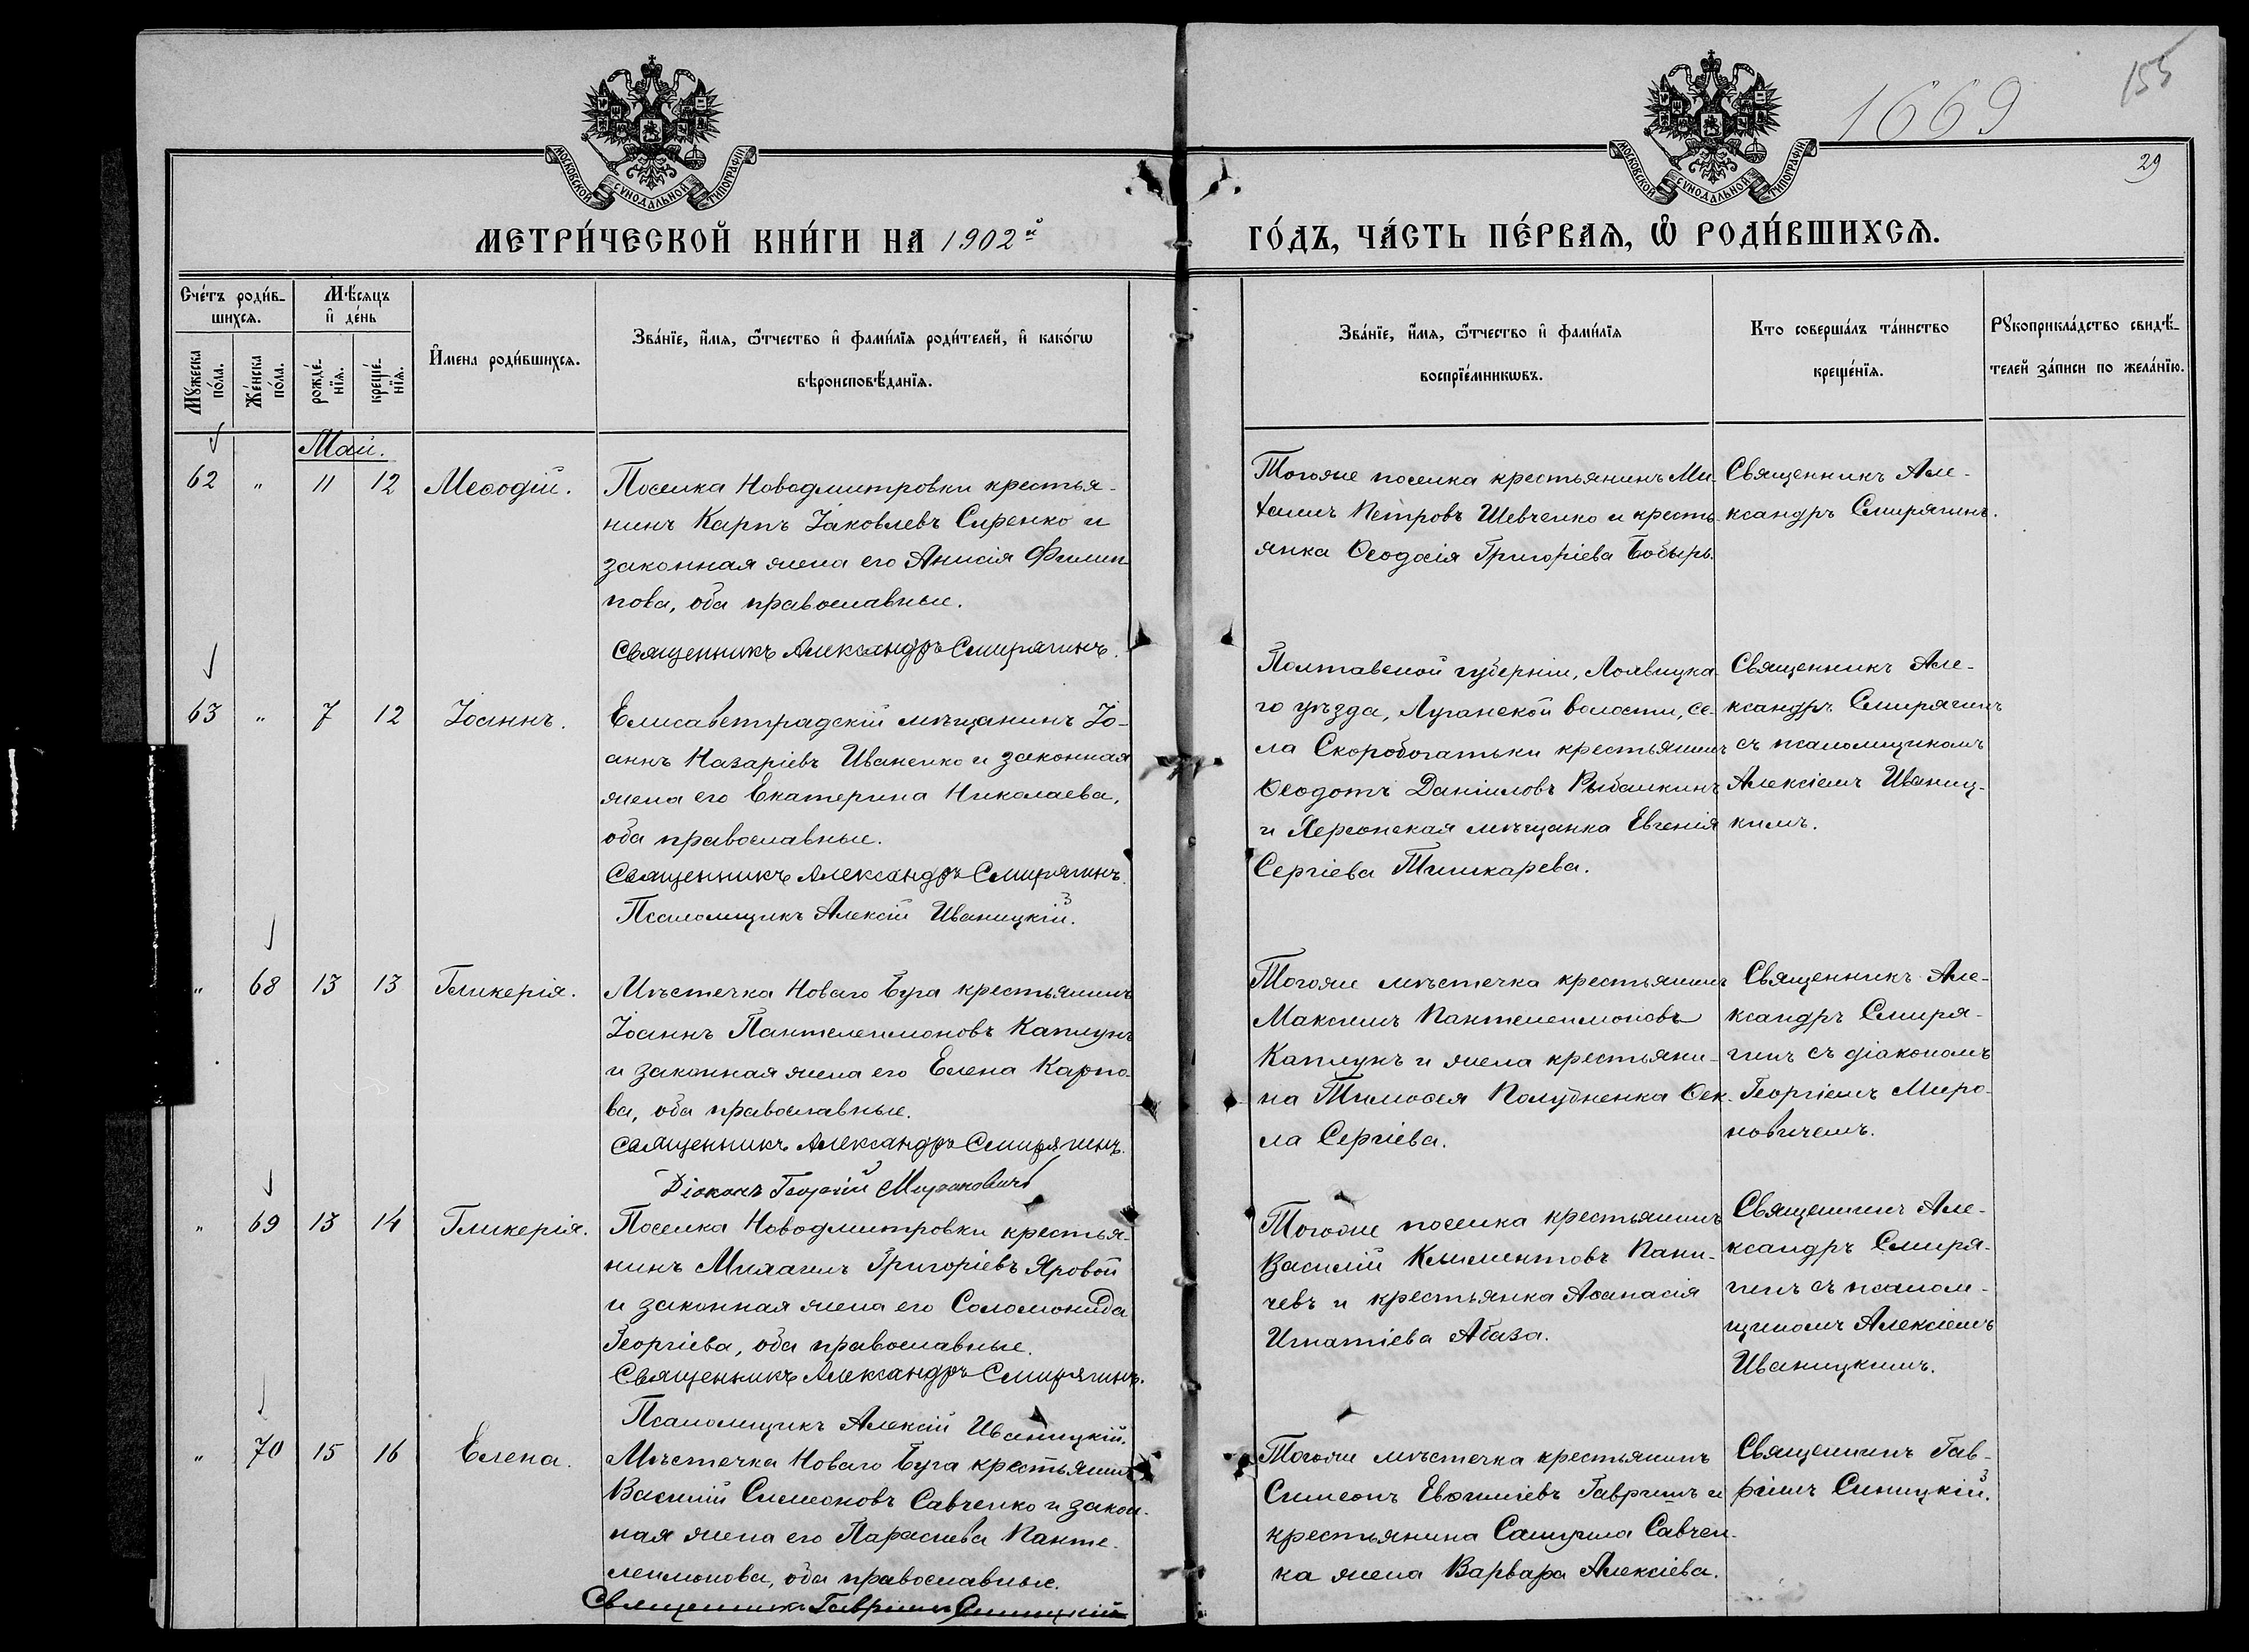 1669
155
29
МОСКОВСКОЙ СѴНОДАЛЬНОЙ ТИПОГРАФІИ
МОСКОВСКОЙ СѴНОДАЛЬНОЙ ТИПОГРАФІИ
МЕТРИ́ЧЕСКОЙ КНИ́ГИ НА 1902й
ГО́ДЪ, ЧА́СТЬ ПЕ́РВАѦ, Ѡ҆ РОДИ́ВШИХСѦ.
Сче́тъ роди́в-
шихсѧ.
Мꙋ́жеска по́ла.
Же́нска по́ла.
Мѣ́сѧцъ
и҆ де́нь
рожде́-
нїѧ.
креще́-
нїѧ.
И҆мена роди́вшихсѧ.
Зва́нїе, и҆́мѧ, ѻ҆́тчество и҆ фами́лїѧ роди́телей, и҆ како́гѡ
вѣроисповѣ́данїѧ.
Зва́нїе, и҆́мѧ, ѻ҆́тчество и҆ фами́лїѧ
воспрїе́мникѡвъ.
Кто соверша́лъ та́инство
креще́нїѧ.
Рꙋкоприкла́дство свидѣ́-
телей за́писи по жела́нїю.
Май.
62 " 11 12 Меѳодій.
Поселка Новодмитровки крестья-
нинъ Карпъ Іаковлевъ Сиренко и
законная жена его Анисія Филип-
пова, оба православные.
Священникъ Александръ Смирягинъ.
Тогоже поселка крестьянинъ Ми-
хаилъ Петровъ Шевченко и кресть-
янка Ѳеодосія Григоріева Бобырь.
Священникъ Але-
ксандръ Смирягинъ.
63 " 7 12 Іоаннъ.
Елисаветградскій мѣщанинъ Іо-
аннъ Назаріевъ Иваненко и законная
жена его Екатерина Николаева,
оба православные.
Священникъ Александръ Смирягинъ.
Псаломщикъ Алексій Иваницкій.
Полтавской губерніи, Лохвицка-
го уѣзда, Луганской волости, се-
ла Скоробогатьки крестьянинъ
Ѳеодотъ Даніиловъ Рыбалкинъ
и Херсонская мѣщанка Евгенія
Сергіева Тишкарева.
Священникъ Але-
ксандръ Смирягинъ
съ псаломщикомъ
Алексіемъ Иваниц-
кимъ.
" 68 13 13 Гликерія.
Мѣстечка Новаго Буга крестьянинъ
Іоаннъ Пантелеимоновъ Каплунъ
и законная жена его Елена Карпо-
ва, оба православные.
Священникъ Александръ Смирягинъ.
Діаконъ Георгій Мироновичъ
Тогоже мѣстечка крестьянинъ
Максимъ Пантелеимоновъ
Каплунъ и жена крестьяни-
на Тимоѳея Полубненка Ѳек-
ла Сергіева.
Священникъ Але-
ксандръ Смиря-
гинъ съ діакономъ
Георгіемъ Миро-
новичемъ.
" 69 13 14 Гликерія.
Поселка Новодмитровки крестья-
нинъ Михаилъ Григоріевъ Яровой
и законная жена его Соломонида
Георгіева, оба православные.
Священникъ Александръ Смирягинъ.
Псаломщикъ Алексій Иваницкій.
Тогоже поселка крестьянинъ
Василій Климентовъ Пани-
чевъ и крестьянка Аѳанасія
Игнатіева Абаза.
Священникъ Але-
ксандръ Смиря-
гинъ съ псалом-
щикомъ Алексіемъ
Иваницкимъ.
" 70 15 16 Елена.
Мѣстечка Новаго Буга крестьянинъ
Василій Симеоновъ Савченко и закон-
ная жена его Параскева Панте-
леимонова, оба православные.
Священникъ Гавріилъ Синицкій
Тогоже мѣстечка крестьянинъ
Симеонъ Евѳиміевъ Гавришъ и
крестьянина Самуила Савчен-
ка жена Варвара Алексіева.
Священникъ Гав-
ріилъ Синицкій.